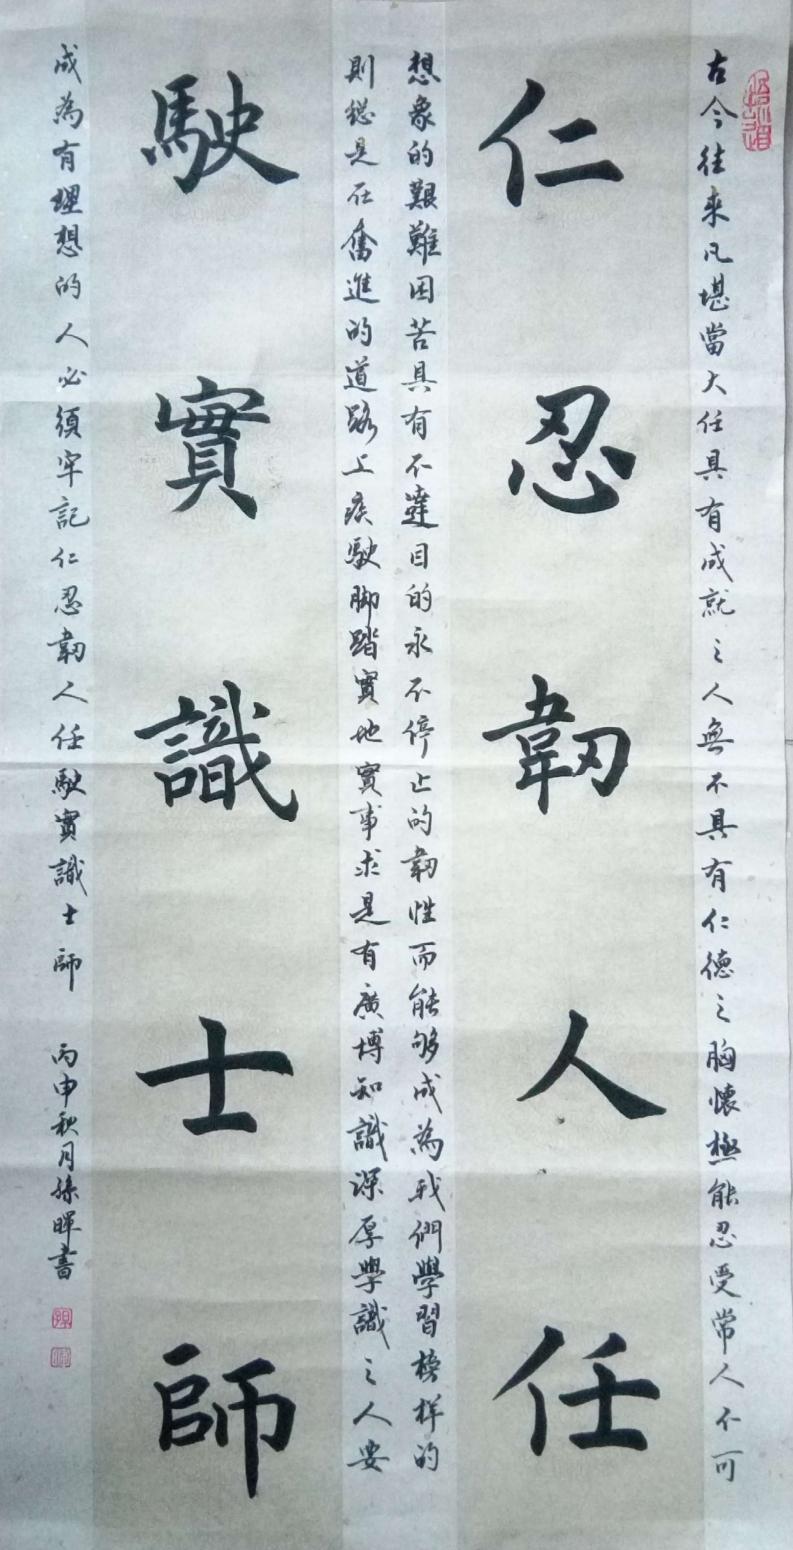 古今往來凡堪當大任具有成就之人無不具有仁德之胸懷極能忍受常人不可
仁忍韌人任
想象的艱難困苦具有不達目的永不停止的韌性而能够成為我們學習榜样的
則總是在奮進的道路上疾駛脚踏實地實事求是有廣博知識深厚學識之人要
駛實識士師
成為有理想的人必須牢記仁忍韌人任駛實識士師 丙申秋月孫暉書